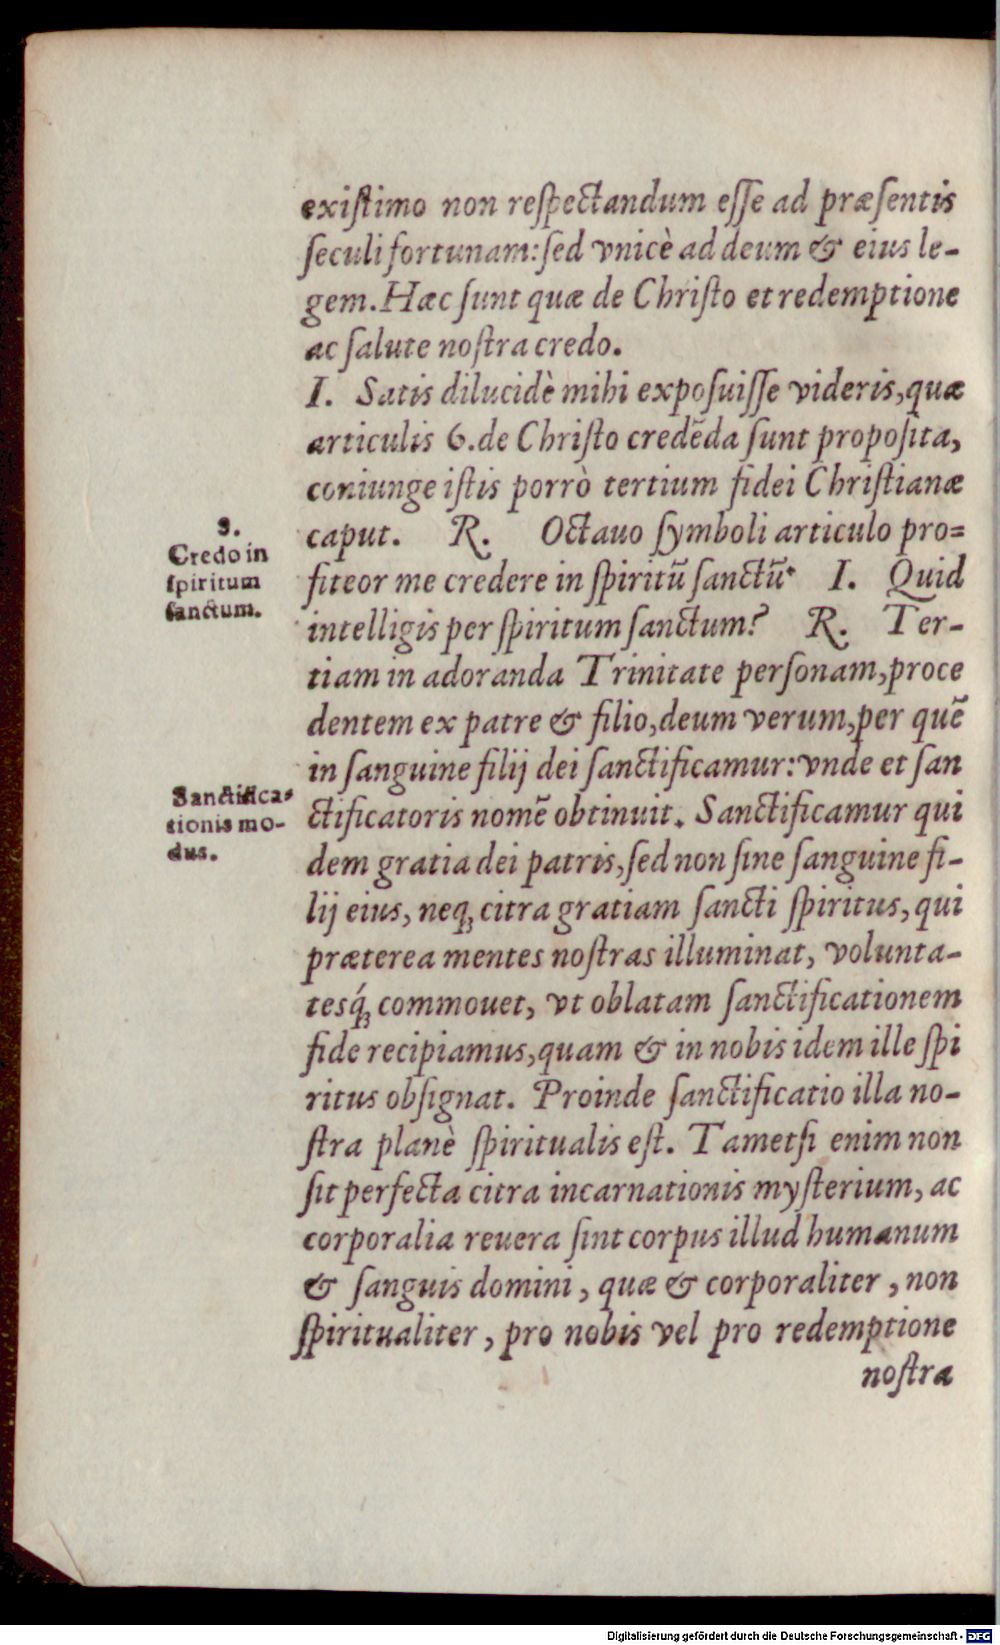 existimo non respectandum esse ad præsentis
seculi fortunam: sed vnicè ad deum & eius le-
gem. Hæc sunt quæ de Christo et redemptione
ac salute nostra credo.
I. Satis dilucidè mihi exposuisse videris, quæ
articulis 6. de Christo credēda sunt proposita,
coniunge istis porrò tertium fidei Christianæ
caput. R. Octauo symboli articulo pro=
fiteor me credere in spiritū sanctū. I. Quid
intelligis per spiritum sanctum? R. Ter-
tiam in adoranda Trinitate personam, proce
dentem ex patre & filio, deum verum, per quē
in sanguine filij dei sanctificamur: vnde et san
ctificatoris nomē obtinuit. Sanctificamur qui
dem gratia dei patris, sed non sine sanguine fi-
lij eius, neq; citra gratiam sancti spiritus, qui
præterea mentes nostras illuminat, volunta-
tesq́; commouet, vt oblatam sanctificationem
fide recipiamus, quam & in nobis idem ille spi
ritus obsignat. Proinde sanctificatio illa no-
stra planè spiritualis est. Tametsi enim non
sit perfecta citra incarnationis mysterium, ac
corporalia reuera sint corpus illud humanum
& sanguis domini, quæ & corporaliter, non
spiritualiter, pro nobis vel pro redemptione
nostra
Credo in
spiritum
sanctum.
Sanctifica=
tionis mo-
dus.
Digitalisierung gefördert durch die Deutsche Forschungsgemeinschaft - DFG